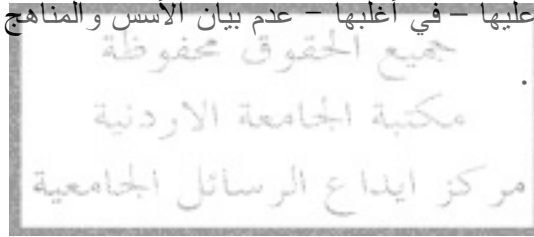 عليها – في أغلبها – عدم بيان الأسس والمناهج
.
جميع الحقوق محفوظة
مكتبة الجامعة الاردنية
مركز ايداع الرسائل الجامعية